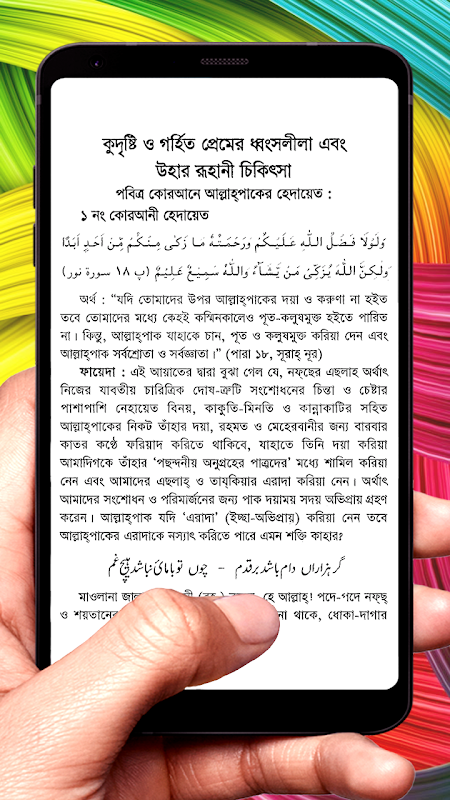 কুদৃষ্টি ও গর্হিত প্রেমের ধ্বংসলীলা এবং
উহার রূহানী চিকিৎসা
পবিত্র কোরআনে আল্লাহ্‌পাকের হেদায়েত :
১ নং কোরআনী হেদায়েত
وَلَوْلَا فَضْلُ اللّٰهِ عَلَيْكُمْ وَرَحْمَتُهٗ مَا زَكٰى مِنْكُمْ مِّنْ اَحَدٍ اَبَدًا
وَلٰكِنَّ اللّٰهَ يُزَكِّىْ مَنْ يَّشَآءُ وَاللّٰهُ سَمِيْعٌ عَلِيْمٌ (پ ١٨ سورة نور)
অর্থ : “যদি তোমাদের উপর আল্লাহ্‌পাকের দয়া ও করুণা না হইত
তবে তোমাদের মধ্যে কেহই কস্মিনকালেও পূত-কলুষমুক্ত হইতে পারিত
না। কিন্তু, আল্লাহ্‌পাক যাহাকে চান, পূত ও কলুষমুক্ত করিয়া দেন এবং
আল্লাহ্‌পাক সর্বশ্রোতা ও সর্বজ্ঞাতা।” (পারা ১৮, সূরাহ্ নূর)
ফায়েদা : এই আয়াতের দ্বারা বুঝা গেল যে, নফ্‌ছের এছলাহ অর্থাৎ
নিজের যাবতীয় চারিত্রিক দোষ-ত্রুটি সংশোধনের চিন্তা ও চেষ্টার
পাশাপাশি নেহায়েত বিনয়, কাকুতি-মিনতি ও কান্নাকাটির সহিত
আল্লাহ্‌পাকের নিকট তাঁহার দয়া, রহমত ও মেহেরবানীর জন্য বারবার
কাতর কণ্ঠে ফরিয়াদ করিতে থাকিবে, যাহাতে তিনি দয়া করিয়া
আমাদিগকে তাঁহার ‘পছন্দনীয় অনুগ্রহের পাত্রদের’ মধ্যে শামিল করিয়া
নেন এবং আমাদের এছলাহ্ ও তায্‌কিয়ার এরাদা করিয়া নেন। অর্থাৎ
আমাদের সংশোধন ও পরিমার্জনের জন্য পাক দয়াময় সদয় অভিপ্রায় গ্রহণ
করেন। আল্লাহ্‌পাক যদি ‘এরাদা’ (ইচ্ছা-অভিপ্রায়) করিয়া নেন তবে
আল্লাহ্‌পাকের এরাদাকে নস্যাৎ করিতে পারে এমন শক্তি কাহার?
گر ہزاراں دام باشد بر قدم - چوں تو بامائی نباشد ہیچ غم
মাওলানা হে আল্লাহ্! পদে-পদে নফ্‌ছ্
ও শয়তানের না থাকে, ধোকা-দাগার